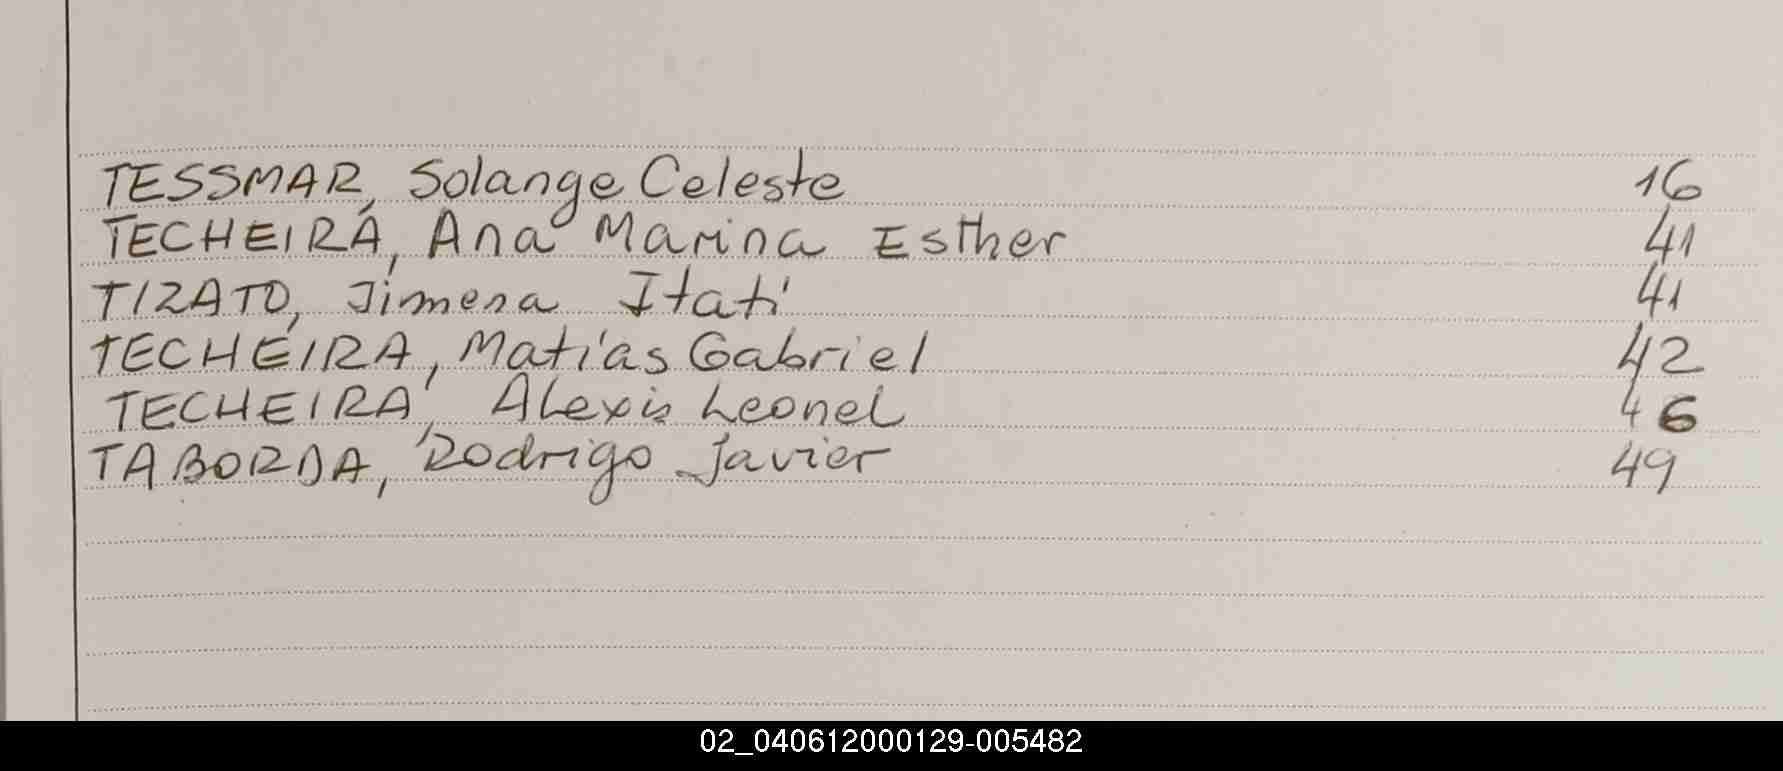 TESSMAR, Solange Celeste 16
TECHEIRA, Ana Marina Esther 41
TIZATO, Jimena Itatí 41
TECHEIRA, Matías Gabriel 42
TECHEIRA, Alexis Leonel 46
TABORDA, Rodrigo Javier 49
02_040612000129-005482